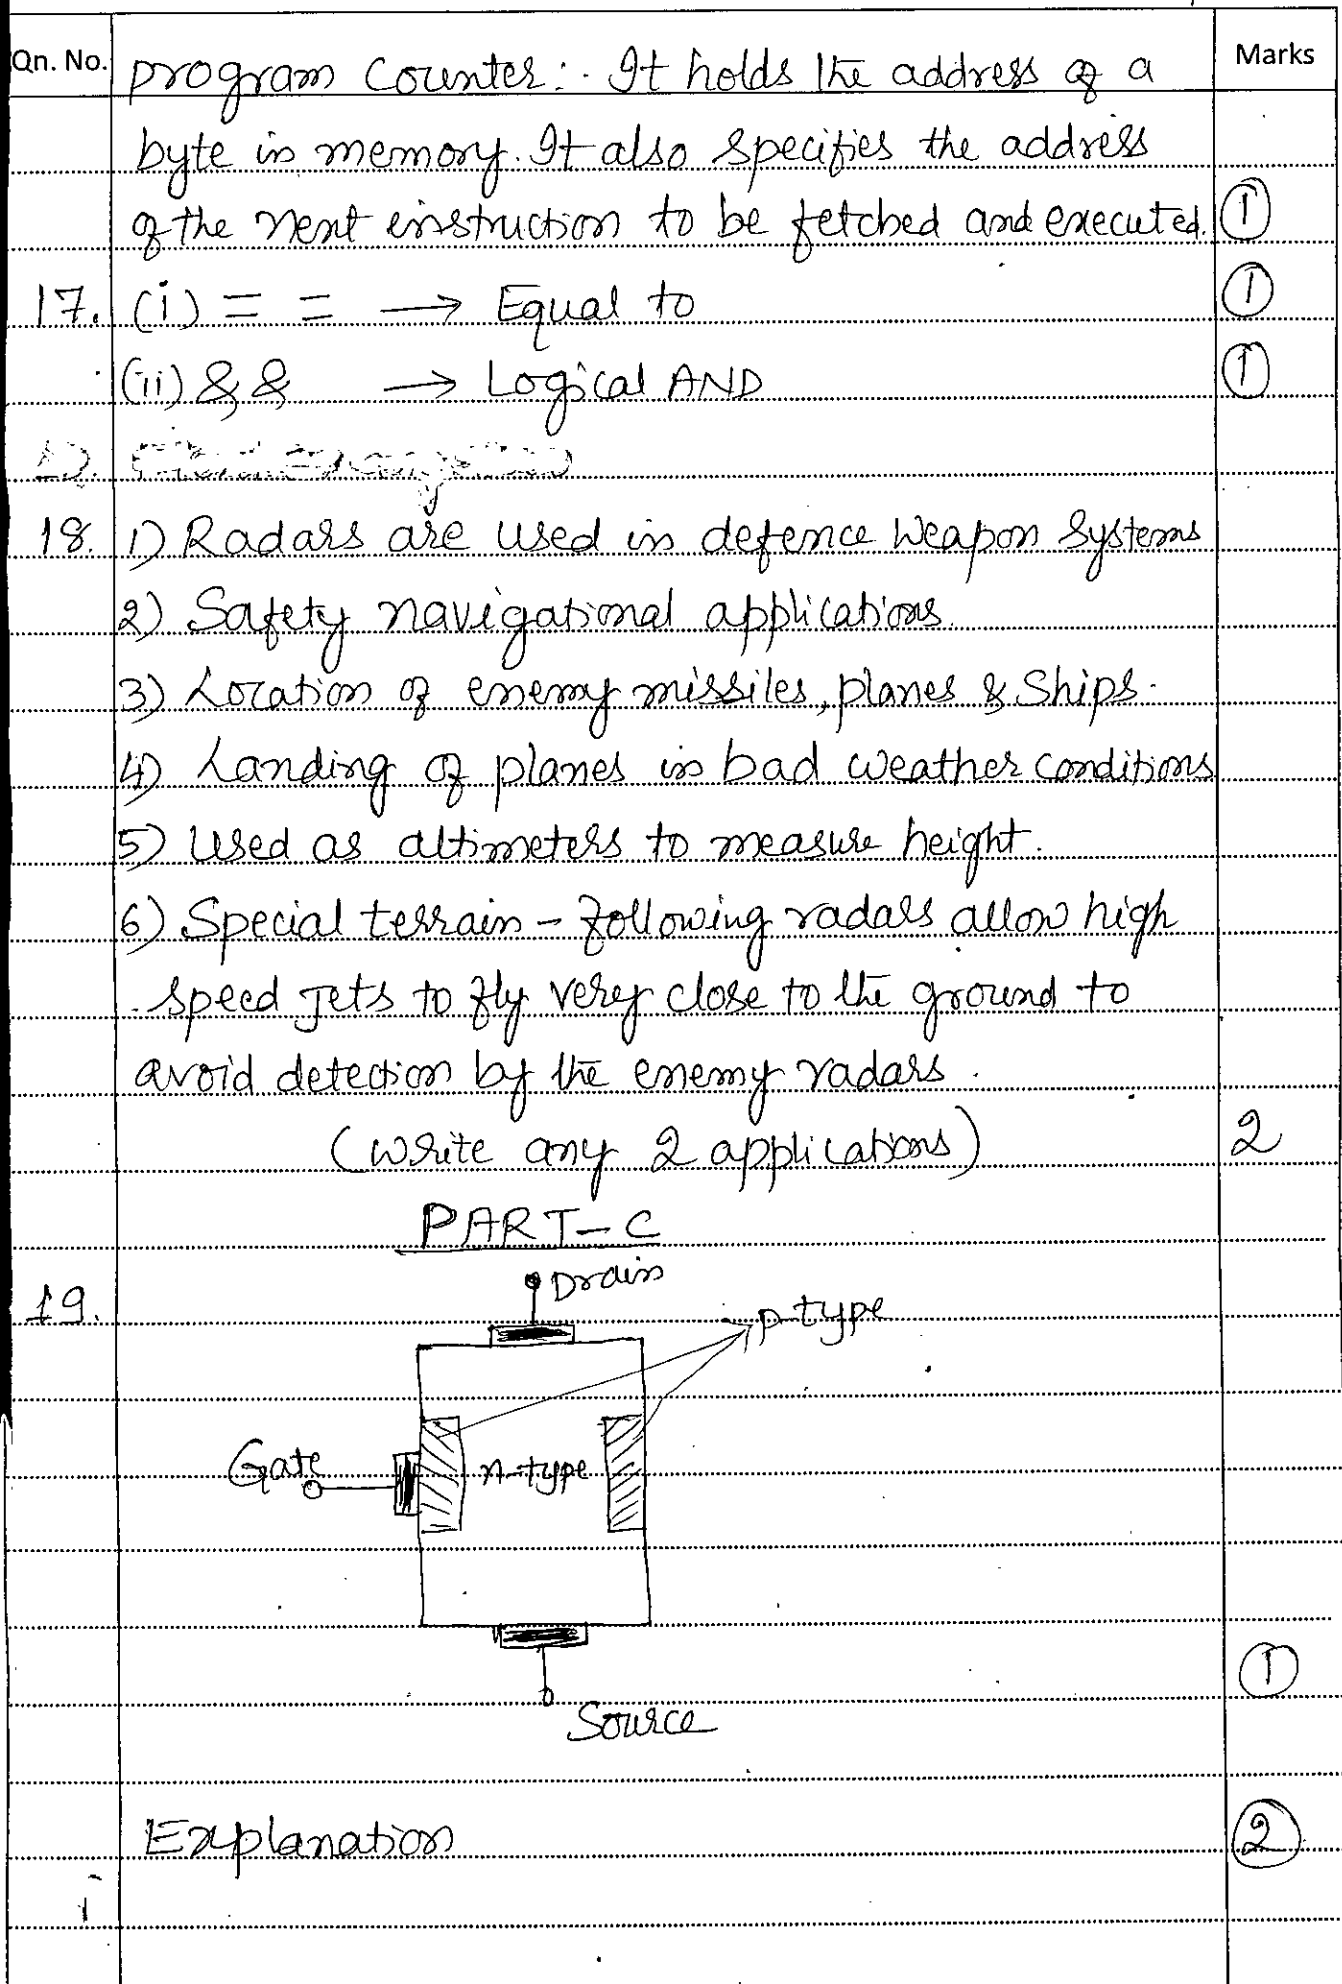 Qn. No. Program Counter :- It holds the address of a Marks
byte in memory. It also specifies the address
of the next instruction to be fetched and executed. 1
17. (i) = = → Equal to 1
(ii) && → Logical AND 1
18. 1) Radars are used in defence weapon systems
2) Safety navigational applications.
3) Location of enemy missiles, planes & Ships.
4) Landing of planes in bad weather conditions
5) Used as altimeters to measure height.
6) Special terrain - following radars allow high
speed Jets to fly very close to the ground to
avoid detection by the enemy radars.
(write any 2 applications) 2
PART-C
19. Drain
p-type
Gate n-type
1
Source
Explanation 2